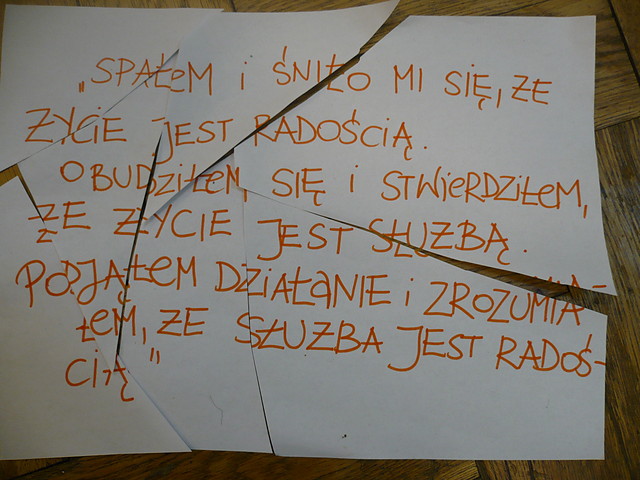 „SPAŁEM I ŚNIŁO MI SIĘ, ŻE
ŻYCIE JEST RADOŚCIĄ.
OBUDZIŁEM SIĘ I STWIERDZIŁEM,
ŻE ŻYCIE JEST SŁUŻBĄ.
PODJĄŁEM DZIAŁANIE I ZROZUMIA-
ŁEM, ŻE SŁUŻBA JEST RADOŚ-
CIĄ"